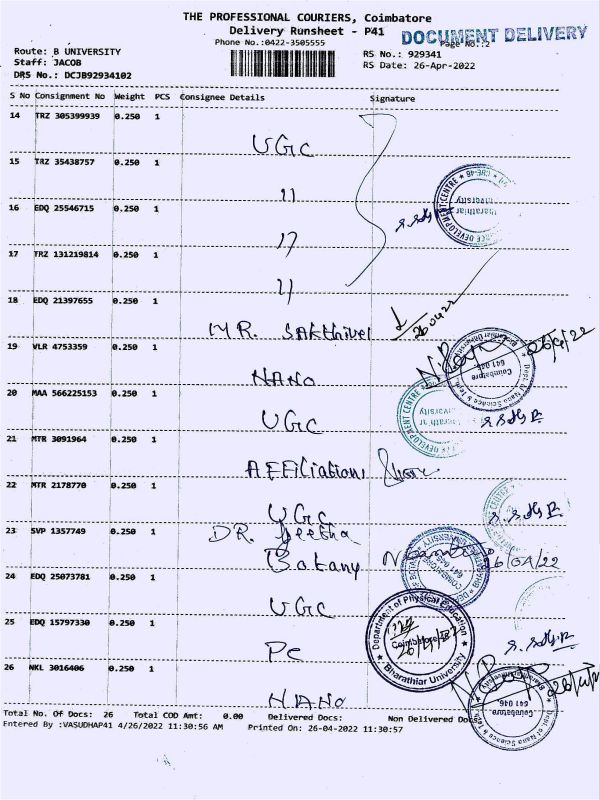 THE PROFESSIONAL COURIERS, Coimbatore
Delivery Runsheet - P41
DOCUMENT DELIVERY
Phone No.:0422-3505555
Page No.:2
Route: B UNIVERSITY
RS No.: 929341
Staff: JACOB
RS Date: 26-Apr-2022
DRS No.: DCJB92934102
S No Consignment No Weight PCS Consignee Details Signature
14 TRZ 305399939 0.250 1
UGC
15 TRZ 35438757 0.250 1
11
16 EDQ 25546715 0.250 1
17
17 TRZ 131219814 0.250 1
11
18 EDQ 21397655 0.250 1
MR. SAKthivel
260422
19 VLR 4753359 0.250 1
NANO
26/4/22
20 MAA 566225153 0.250 1
UGC
21 MTR 3091964 0.250 1
AFFiliation
22 MTR 2178770 0.250 1
UGC
23 SVP 1357749 0.250 1
DR. Geetha
Botany
26/04/22
24 EDQ 25073781 0.250 1
UGC
25 EDQ 15797330 0.250 1
PC
Department of Physical Education
Coimbatore
Bharathiar University
26 NKL 3016406 0.250 1
NANO
Dept. of Nano Science & Tech.
Coimbatore
641 046
Total No. Of Docs: 26 Total COD Amt: 0.00 Delivered Docs: Non Delivered Docs:
Entered By :VASUDHAP41 4/26/2022 11:30:56 AM Printed On: 26-04-2022 11:30:57